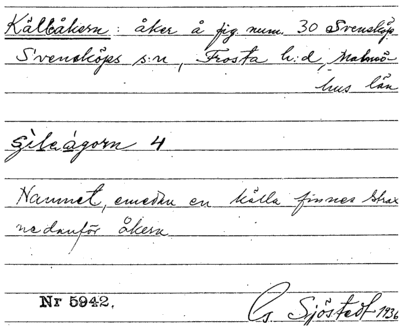 Källåkern: åker å fig num. 30 Svensköp
Svensköps s:n, Frosta h:d, Malmö-
hus län
4
Namnet, emedan en källa finnes strax
nedanför åkern
Nr 5942.
G. Sjöstedt 1936